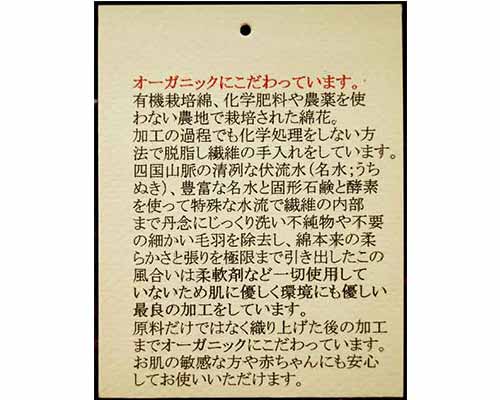 オーガニックにこだわっています。
有機栽培綿、化学肥料や農薬を使
わない農地で栽培された綿花。
加工の過程でも化学処理をしない方
法で脱脂し繊維の手入れをしています。
四国山脈の清冽な伏流水（名水；うち
ぬき）、豊富な名水と固形石鹸と酵素
を使って特殊な水流で繊維の内部
まで丹念にじっくり洗い不純物や不要
の細かい毛羽を除去し、綿本来の柔
らかさと張りを極限まで引き出したこの
風合いは柔軟剤など一切使用して
いないため肌に優しく環境にも優しい
最良の加工をしています。
原料だけではなく織り上げた後の加工
までオーガニックにこだわっています。
お肌の敏感な方や赤ちゃんにも安心
してお使いいただけます。